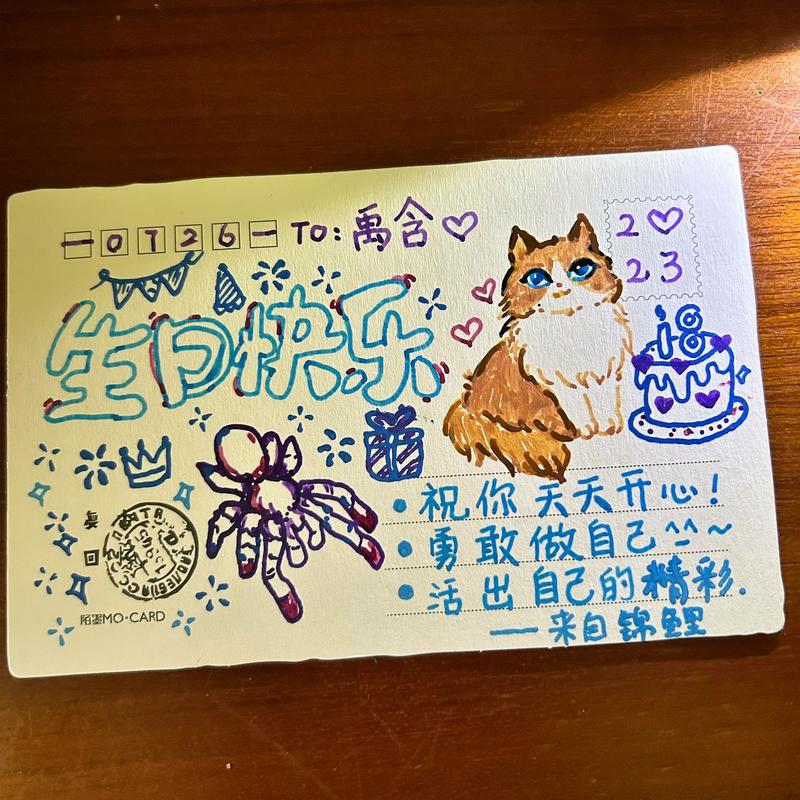 一0726一 TO:禹含♡
2♡
23
生日快乐
18
•祝你天天开心!
•勇敢做自己^^~
•活出自己的精彩.
——来自锦鲤
陌墨MO·CARD